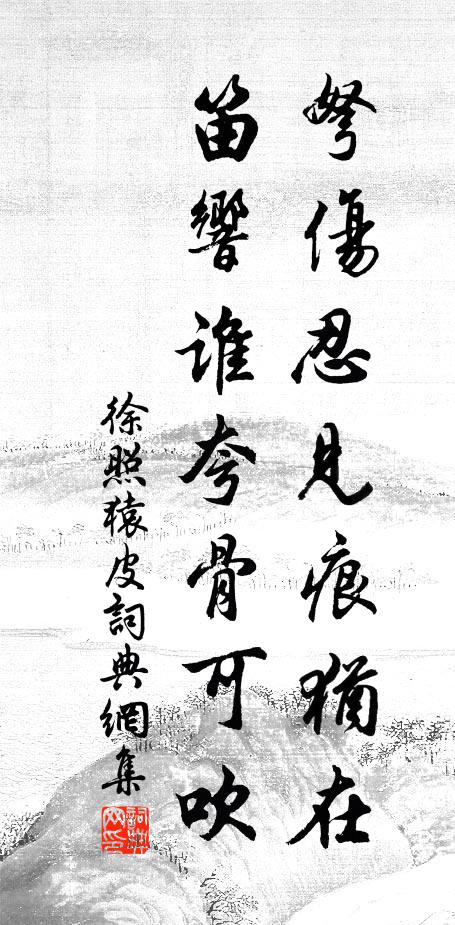 弩傷忍見痕猶在
笛響誰夸骨可吹
徐照猿皮詞典網集